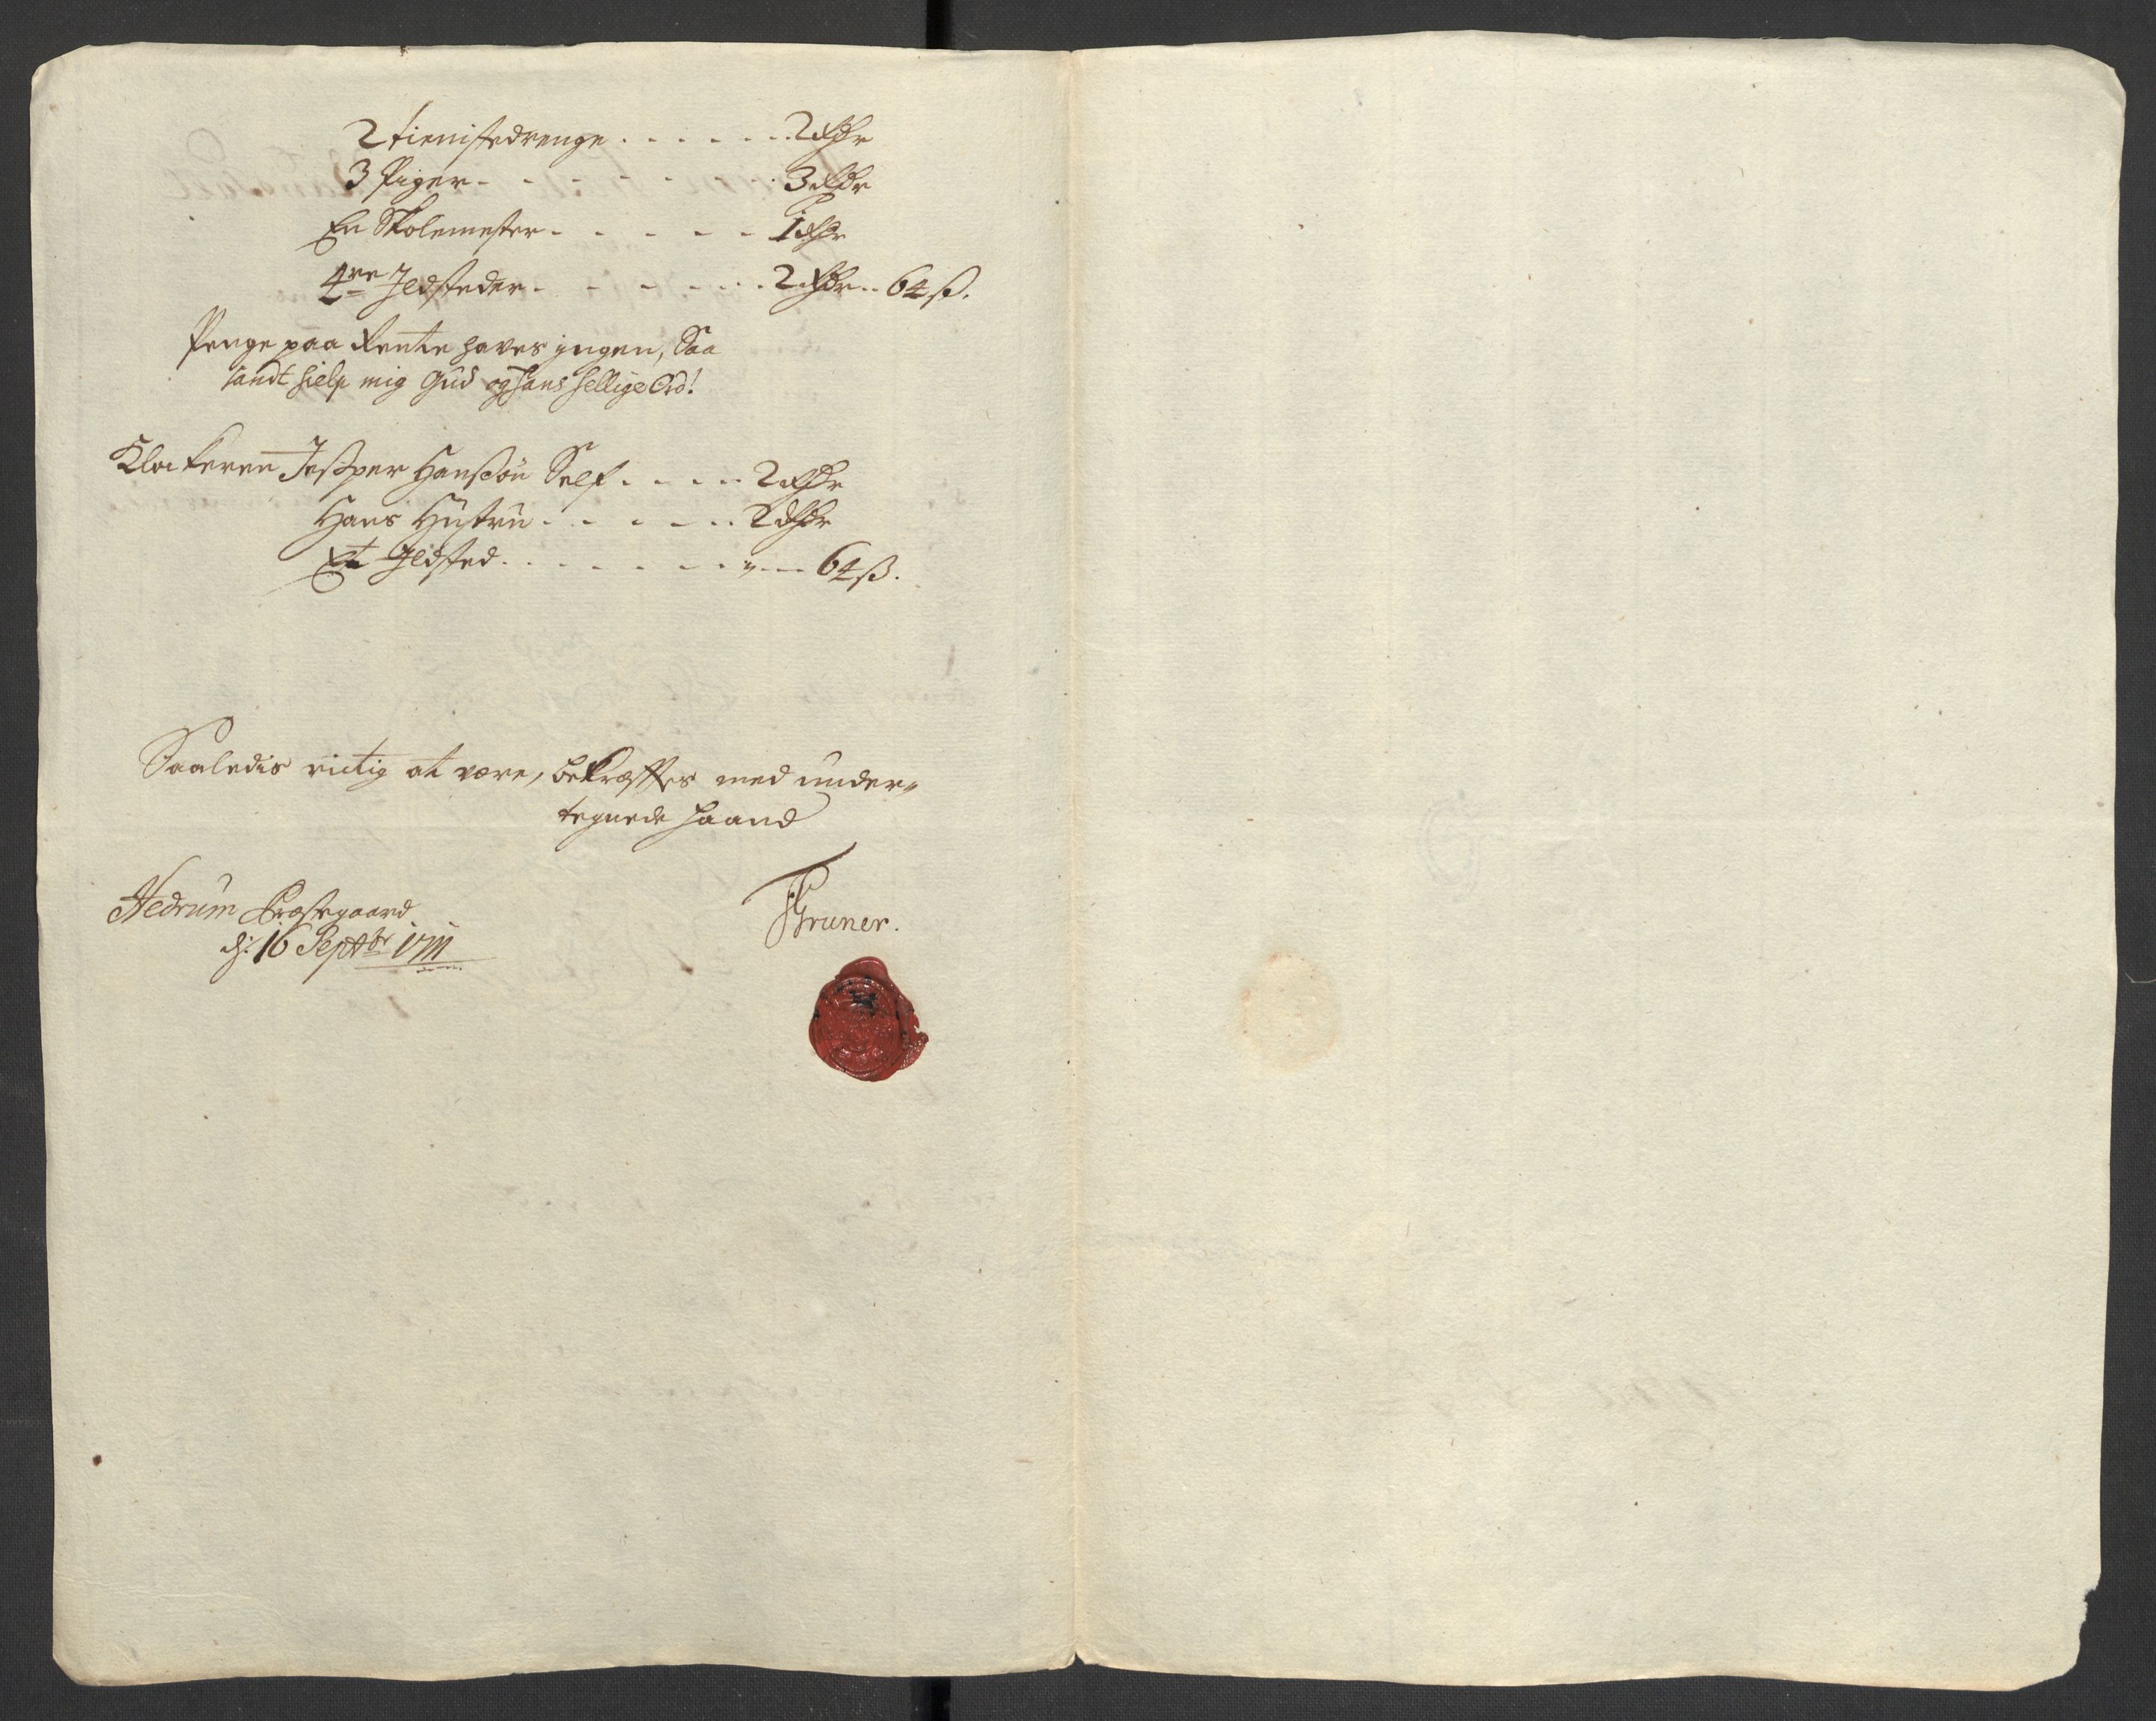 2 tienistedrenge . . . . . . 2 Rdr
3 Piger . . . . . . . 3 Rdr
En Skolemester . . . . . 1 Rdr
4re Ildsteder . . . . . . 2 Rdr .. 64 ß.
Penge paa Rente haves ingen, Saa
sandt hielp mig Gud og Hans hellige Ord!
Klockeren Jesper Hansøn Self . . . . 2 Rdr
Hans Hustru . . . . . . 2 Rdr
Et Ildsted . . . . . . . „ — 64 ß.
Saaledis rictig at være, bekræfftes med under-
tegnede haand
Hedrum Præstegaard
d: 16 Septbr 1711
Gruner.